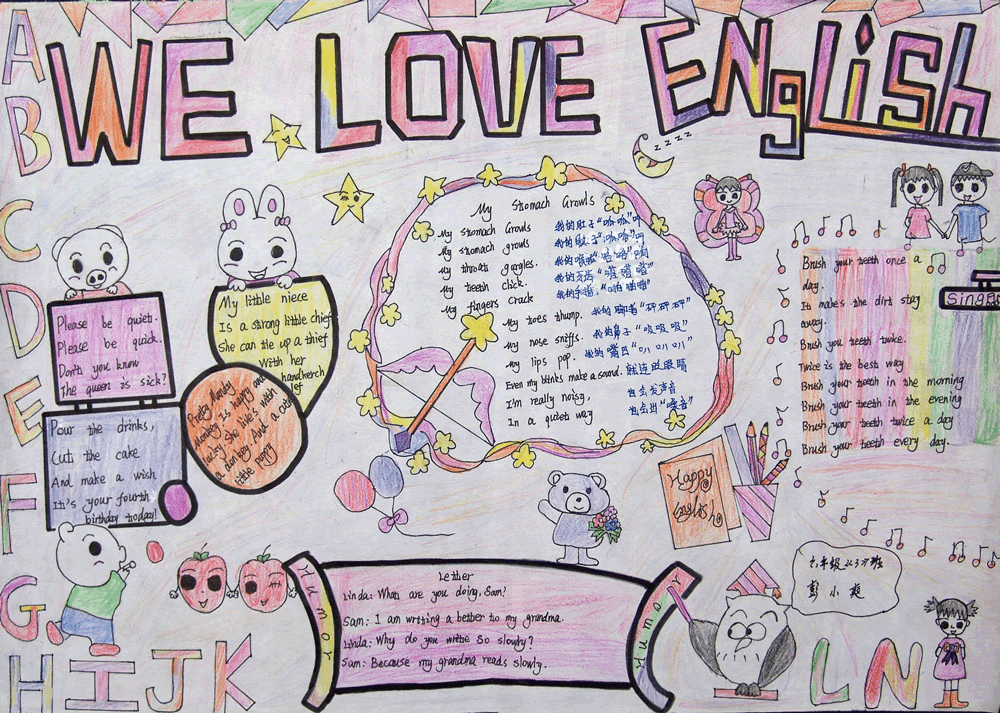 WE LOVE ENglish
A
B
C
D
E
F
G
H I J K
L N
zzzz
Please be quiet.
Please be quick.
Don't you know
The queen is sick?
My little niece
Is a strong little chief
She can tie up a thief
With her
handkerch
ief
Pour the drinks,
Cut the cake
And make a wish
It's your fourth
birthday today!
Pretty Monky
Monkey is happy and
lucky She like's with
a donkey And a cute
little puppy
My Stomach Growls
My Stomach Growls 我的肚子“呱呱”叫
My stomach growls 我的肚子“咕咕”叫
My throat gurgles. 我的喉咙
My teeth click. 我的牙齿
My fingers crack 我的手指“啪啪啪”
My toes thump. 我的脚趾“砰砰砰”
My nose sniffs. 我的鼻子“吸吸吸”
My lips pop. 我的嘴巴“叭叭叭”
Even my blinks make a sound. 就连眨眼睛
I'm really noisy, 也会发声音
In a quiet way 也会出“噪音”
Sing
Brush your teeth once a
day.
It makes the dirt stay
away.
Brush you teeth twice.
Twice is the best way
Brush your teeth in the morning
Brush your teeth in the evening
Brush your teeth twice a day
Brush your teeth every day.
Happy
English
Humor
Lether
Linda: What are you doing, Sam?
Sam: I am writing a better to my grandma.
Linda: Why do you write So slowly?
Sam: Because my grandma reads slowly.
Humor
六年级
彭小